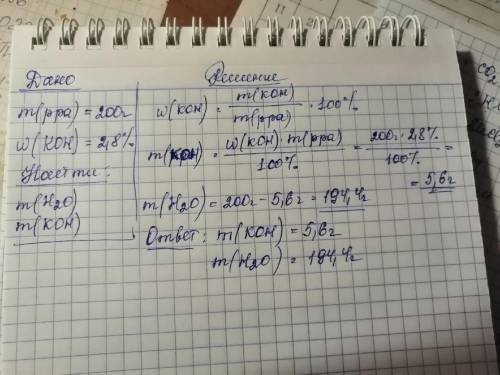 Дано
m(рра) = 200г
w(KOH) = 2,8%
Найти:
m(H2O)
m(KOH)
Решение
w(KOH) = m(KOH) / m(рра) · 100%
m(KOH) = w(KOH) · m(рра) / 100% = 200г · 2,8% / 100% =
= 5,6г
m(H2O) = 200г - 5,6г = 194,4г
Ответ: m(KOH) = 5,6г
m(H2O) = 194,4г
CO2